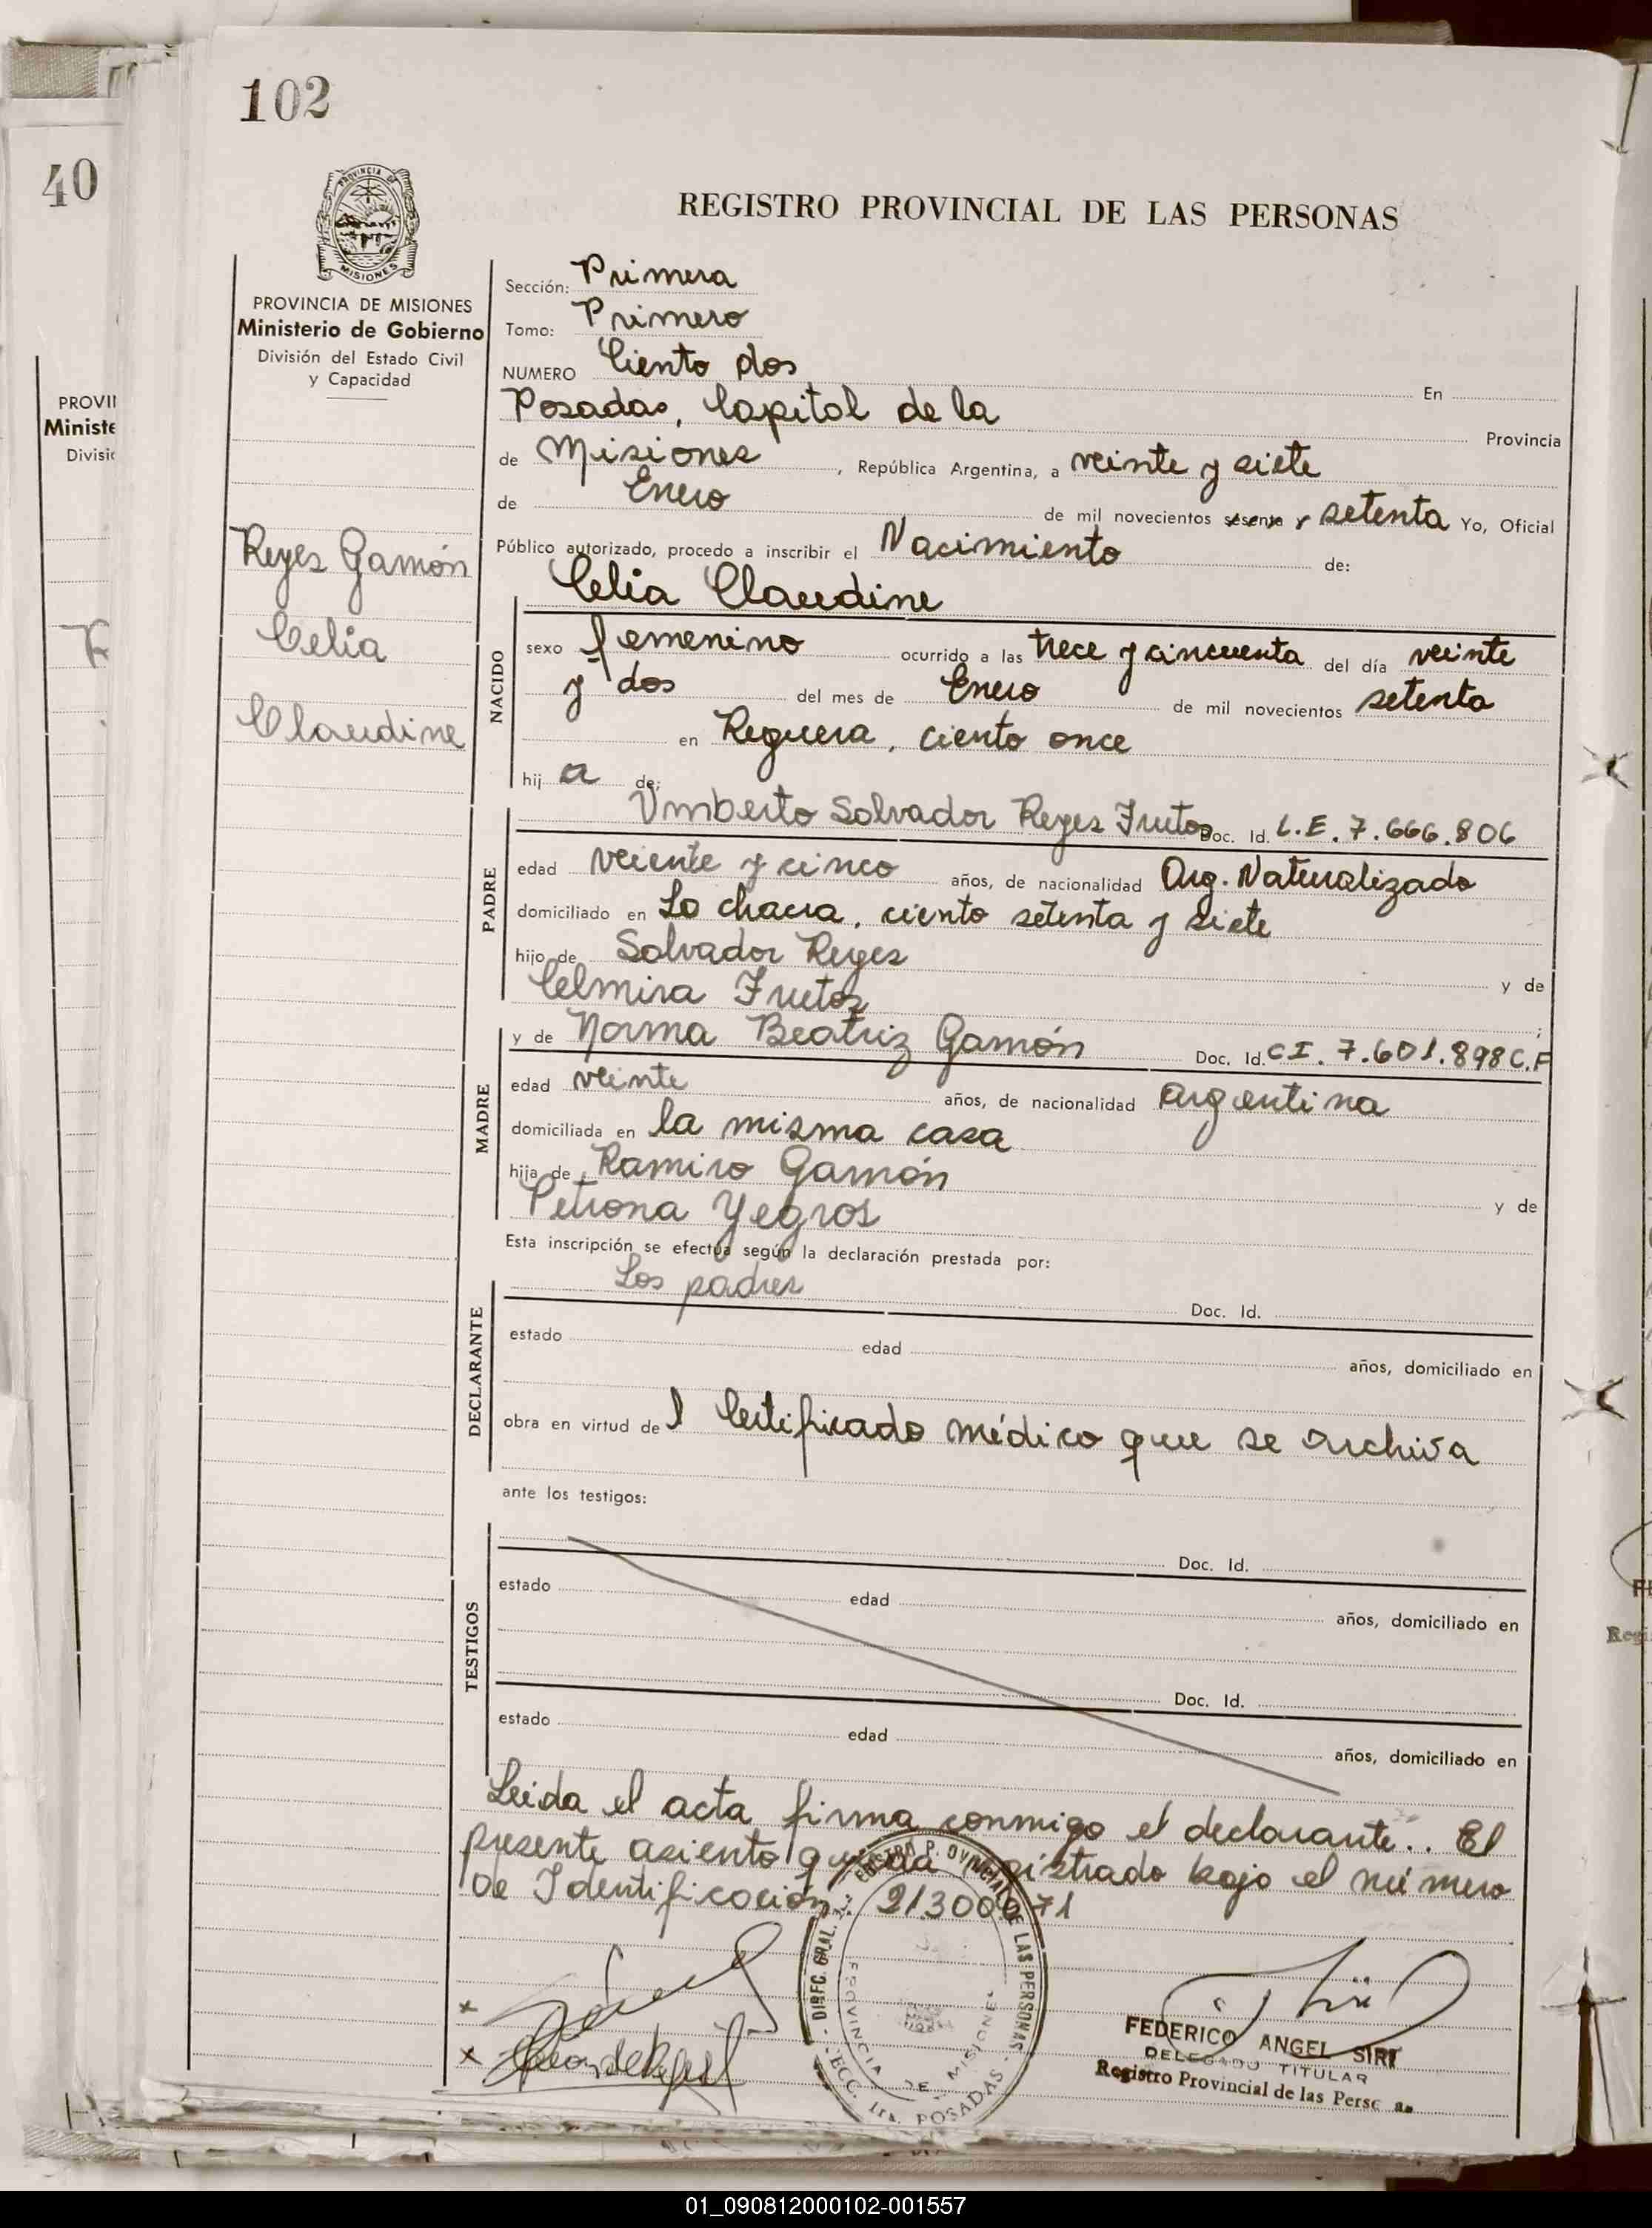 102
40
PROVINCIA DE
MISIONES
REGISTRO PROVINCIAL DE LAS PERSONAS
PROVINCIA DE MISIONES
Ministerio de Gobierno
División del Estado Civil
y Capacidad
PROVI
Ministe
Divisi
Reyes Gamón
Celia
Claudine
Sección: Primera
Tomo: Primero
NUMERO Ciento dos En
Posadas, Capital de la Provincia
de Misiones, República Argentina, a veinte y siete
de Enero de mil novecientos sesenta y setenta Yo, Oficial
Público autorizado, procedo a inscribir el Nacimiento de:
Celia Claudine
NACIDO
sexo femenino ocurrido a las trece y cincuenta del día veinte
y dos del mes de Enero de mil novecientos setenta
en Reguera, ciento once
hij a de:
PADRE
Umberto Salvador Reyes Frutos Doc. Id. L.E. 7.666.806
edad veiente y cinco años, de nacionalidad Arg. Naturalizado
domiciliado en La chacra, ciento setenta y siete
hijo de Salvador Reyes y de
Celmira Frutos ;
MADRE
y de Norma Beatriz Gamón Doc. Id. C.I. 7.601.898 C.F
edad veinte años, de nacionalidad argentina
domiciliada en la misma casa
hija de Ramiro Gamón y de
Petrona Yegros
Esta inscripción se efectúa según la declaración prestada por:
DECLARANTE
Los padres Doc. Id.
estado edad años, domiciliado en
obra en virtud de l Certificado médico que se archiva
ante los testigos:
TESTIGOS
Doc. Id.
estado edad años, domiciliado en
Doc. Id.
estado edad años, domiciliado en
Leida el acta firma conmigo el declarante.. El
presente asiento queda registrado bajo el número
de Identificación 21300071
DIREC. GRAL. REGISTRO PROVINCIAL DE LAS PERSONAS
PROVINCIA DE MISIONES
SECC. 1ra. POSADAS
FEDERICO ANGEL SIRI
DELEGADO TITULAR
Registro Provincial de las Perso as
Regi
01_090812000102-001557